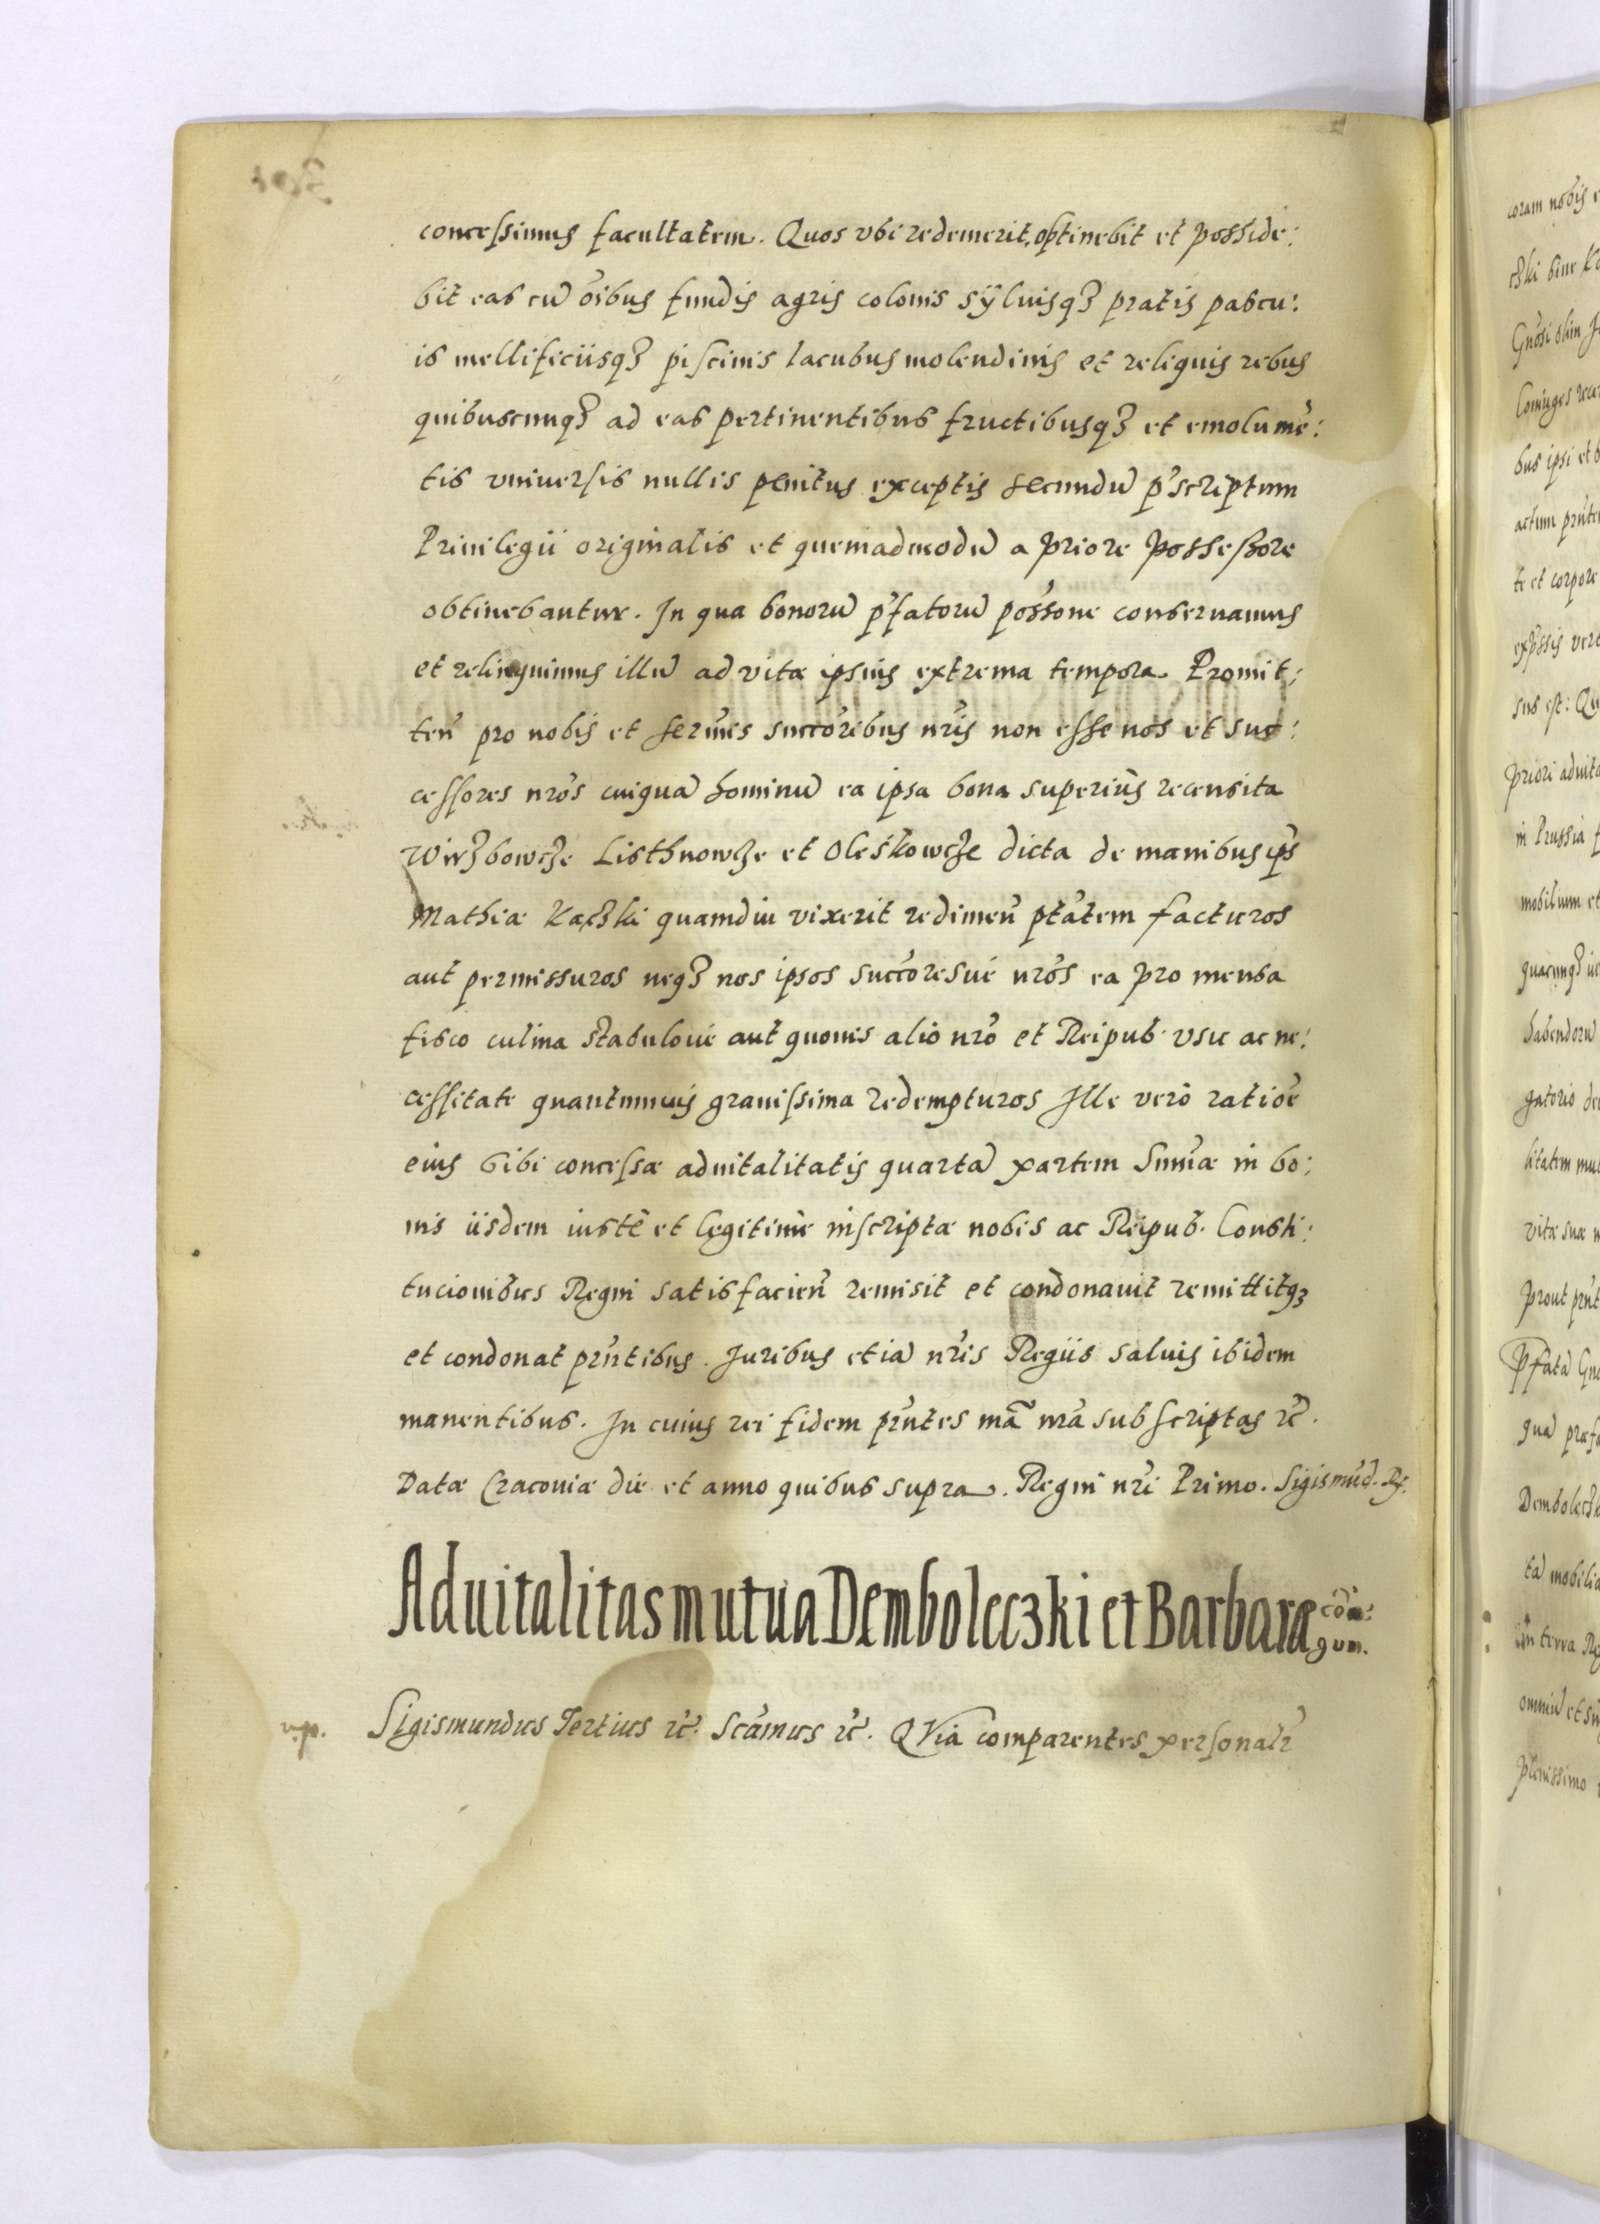 concessimus facultatem. Quos vbi redemerit, optinebit et posside:
bit eas cū oībus fundis agris colonis sÿluisqȝ pratis pascu:
is mellificiisqȝ piscinis lacubus molendinis et reliquis rebus
quibuscunqȝ ad eas pertinentibus fructibusqȝ et emolumē:
tis vniuersis nullis penitus exceptis secundū p̄scriptum
Priuilegii originalis et quemadmodū a priore possessore
obtinebantur. In qua bonorū p̄fatorū possōne conseruamus
et relinquimus illū ad vitæ ipsius extrema tempora. Promit:
ten̄ pro nobis et serm̄is succōribus nr̄is non esse nos et suc:
cessores nr̄os cuiquā hominū ea ipsa bona superiùs recensita
Wirzbowcze Listhnowcze et Oleskowcze dicta de manibus ip̄s
Mathiæ Kaczki quamdiu vixerit redimen̄ ptātem facturos
aut permissuros neqȝ nos ipsos succōresuè nr̄os ea pro mensa
fisco culina stabuloue aut quouis alio nr̄o et Reipub. vsu ac ne:
cessitate quantumuis grauissima redempturos Ille verò ratiōe
eius sibi concessæ aduitalitatis quartā partem Sum̄æ in bo:
nis iisdem iustè et legitimè inscriptæ nobis ac Reipub. Consti:
tucionibus Regni satisfacien̄ remisit et condonauit remittitqȝ
et condonat prn̄tibus. Juribus etiā nr̄is Regiis saluis ibidem
manentibus. In cuius rei fidem prn̄tes mā nrā subscriptas rc̄.
Datæ Cracouiæ die et anno quibus supra. Regni nr̄i Primo. Sigismūd. Rx.
Aduitalitas mutua Demboleczki et Barbaræ cōn:
gum.
Sigismundus Tertius rc̄. Scāmus rc̄. QVia comparentes personalr̄
coram nobis
czki siue
Gnōsi olim
Coniuges
bus ipsi et
actum prn̄te
te et corpore
exp̄ssis
sus est: Qu
priori aduita
in Prussia
mobilium et
quacunqȝ
habendorū
gatorio de
litatem mu
vitæ suæ
Prout prn̄t
Pfatā Gn
quā præfa
Demboleczk
tā mobilia
in terra
omniū et su
plenissimo